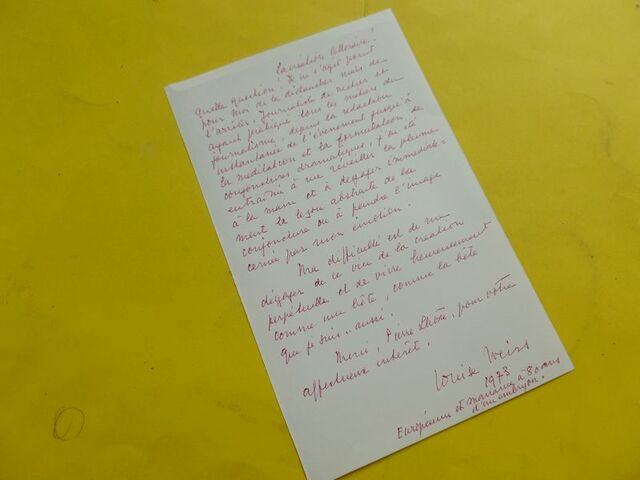 La création littéraire !
Quelle question ! Il ne s'agit point
pour moi de la déclancher mais de
l'arrêter. Journaliste de métier et
ayant pratiqué tous les métiers du
journalisme, depuis la rédaction
instantanée de l'événement jusqu'à
la méditation et la formulation de
conjonctures dramatiques, j'ai été
entraînée à me réveiller la plume
à la main et à dégager immédiate-
ment la leçon abstraite de la
conjoncture ou à peindre l'image
cernée par mon émotion.
Ma difficulté est de me
dégager de ce vice de la création
perpétuelle et de vivre heureusement
comme une bête, comme la bête
que je suis.. aussi.
Merci, Pierre Lhoste, pour votre
affectueux intérêt.
Louise Weiss
1973
Européenne et marraine à 80 ans
d'un embryon.